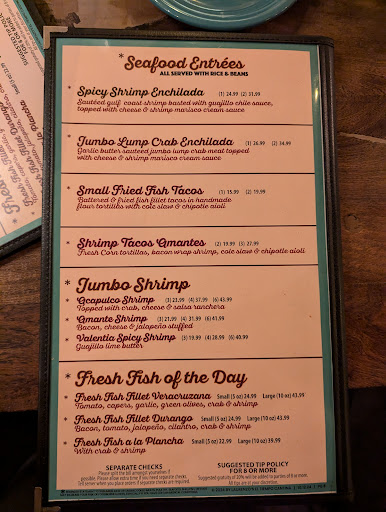 * Seafood Entrées
ALL SERVED WITH RICE & BEANS
* Spicy Shrimp Enchilada (1) 24.99 (2) 31.99
Sautéed gulf coast shrimp basted with guajillo chile sauce,
topped with cheese & shrimp marisco cream sauce
* Jumbo Lump Crab Enchilada (1) 26.99 (2) 34.99
Garlic butter sauteed jumbo lump crab meat topped
with cheese & shrimp marisco cream sauce
* Small Fried Fish Tacos (1) 15.99 (2) 19.99
Battered & fried fish fillet tacos in handmade
flour tortillas with cole slaw & chipotle aioli
* Shrimp Tacos Amantes (2) 19.99 (3) 27.99
Fresh Corn tortillas, bacon wrap shrimp, cole slaw & chipotle aioli
* Jumbo Shrimp
* Acapulco Shrimp (3) 23.99 (4) 37.99 (6) 43.99
Topped with crab, cheese & salsa ranchera
* Amante Shrimp (3) 21.99 (4) 31.99 (6) 41.99
Bacon, cheese & jalapeño stuffed
* Valentia Spicy Shrimp (3) 19.99 (4) 28.99 (6) 40.99
Guajillo lime butter
* Fresh Fish of the Day
* Fresh Fish Fillet Veracruzana Small (5 oz) 24.99 Large (10 oz) 43.99
Tomato, capers, garlic, green olives, crab & shrimp
* Fresh Fish Fillet Durango Small (5 oz) 24.99 Large (10 oz) 43.99
Bacon, tomato, jalapeño, cilantro, crab & shrimp
* Fresh Fish a la Plancha Small (5 oz) 22.99 Large (10 oz) 39.99
With crab & shrimp
SEPARATE CHECKS
Please split the bill amongst yourselves if
possible. Please allow extra time if you need separate checks.
Tell server when you place orders if separate checks are required.
SUGGESTED TIP POLICY
FOR 8 OR MORE
Suggested gratuity of 20% will be added to parties of 8 or more.